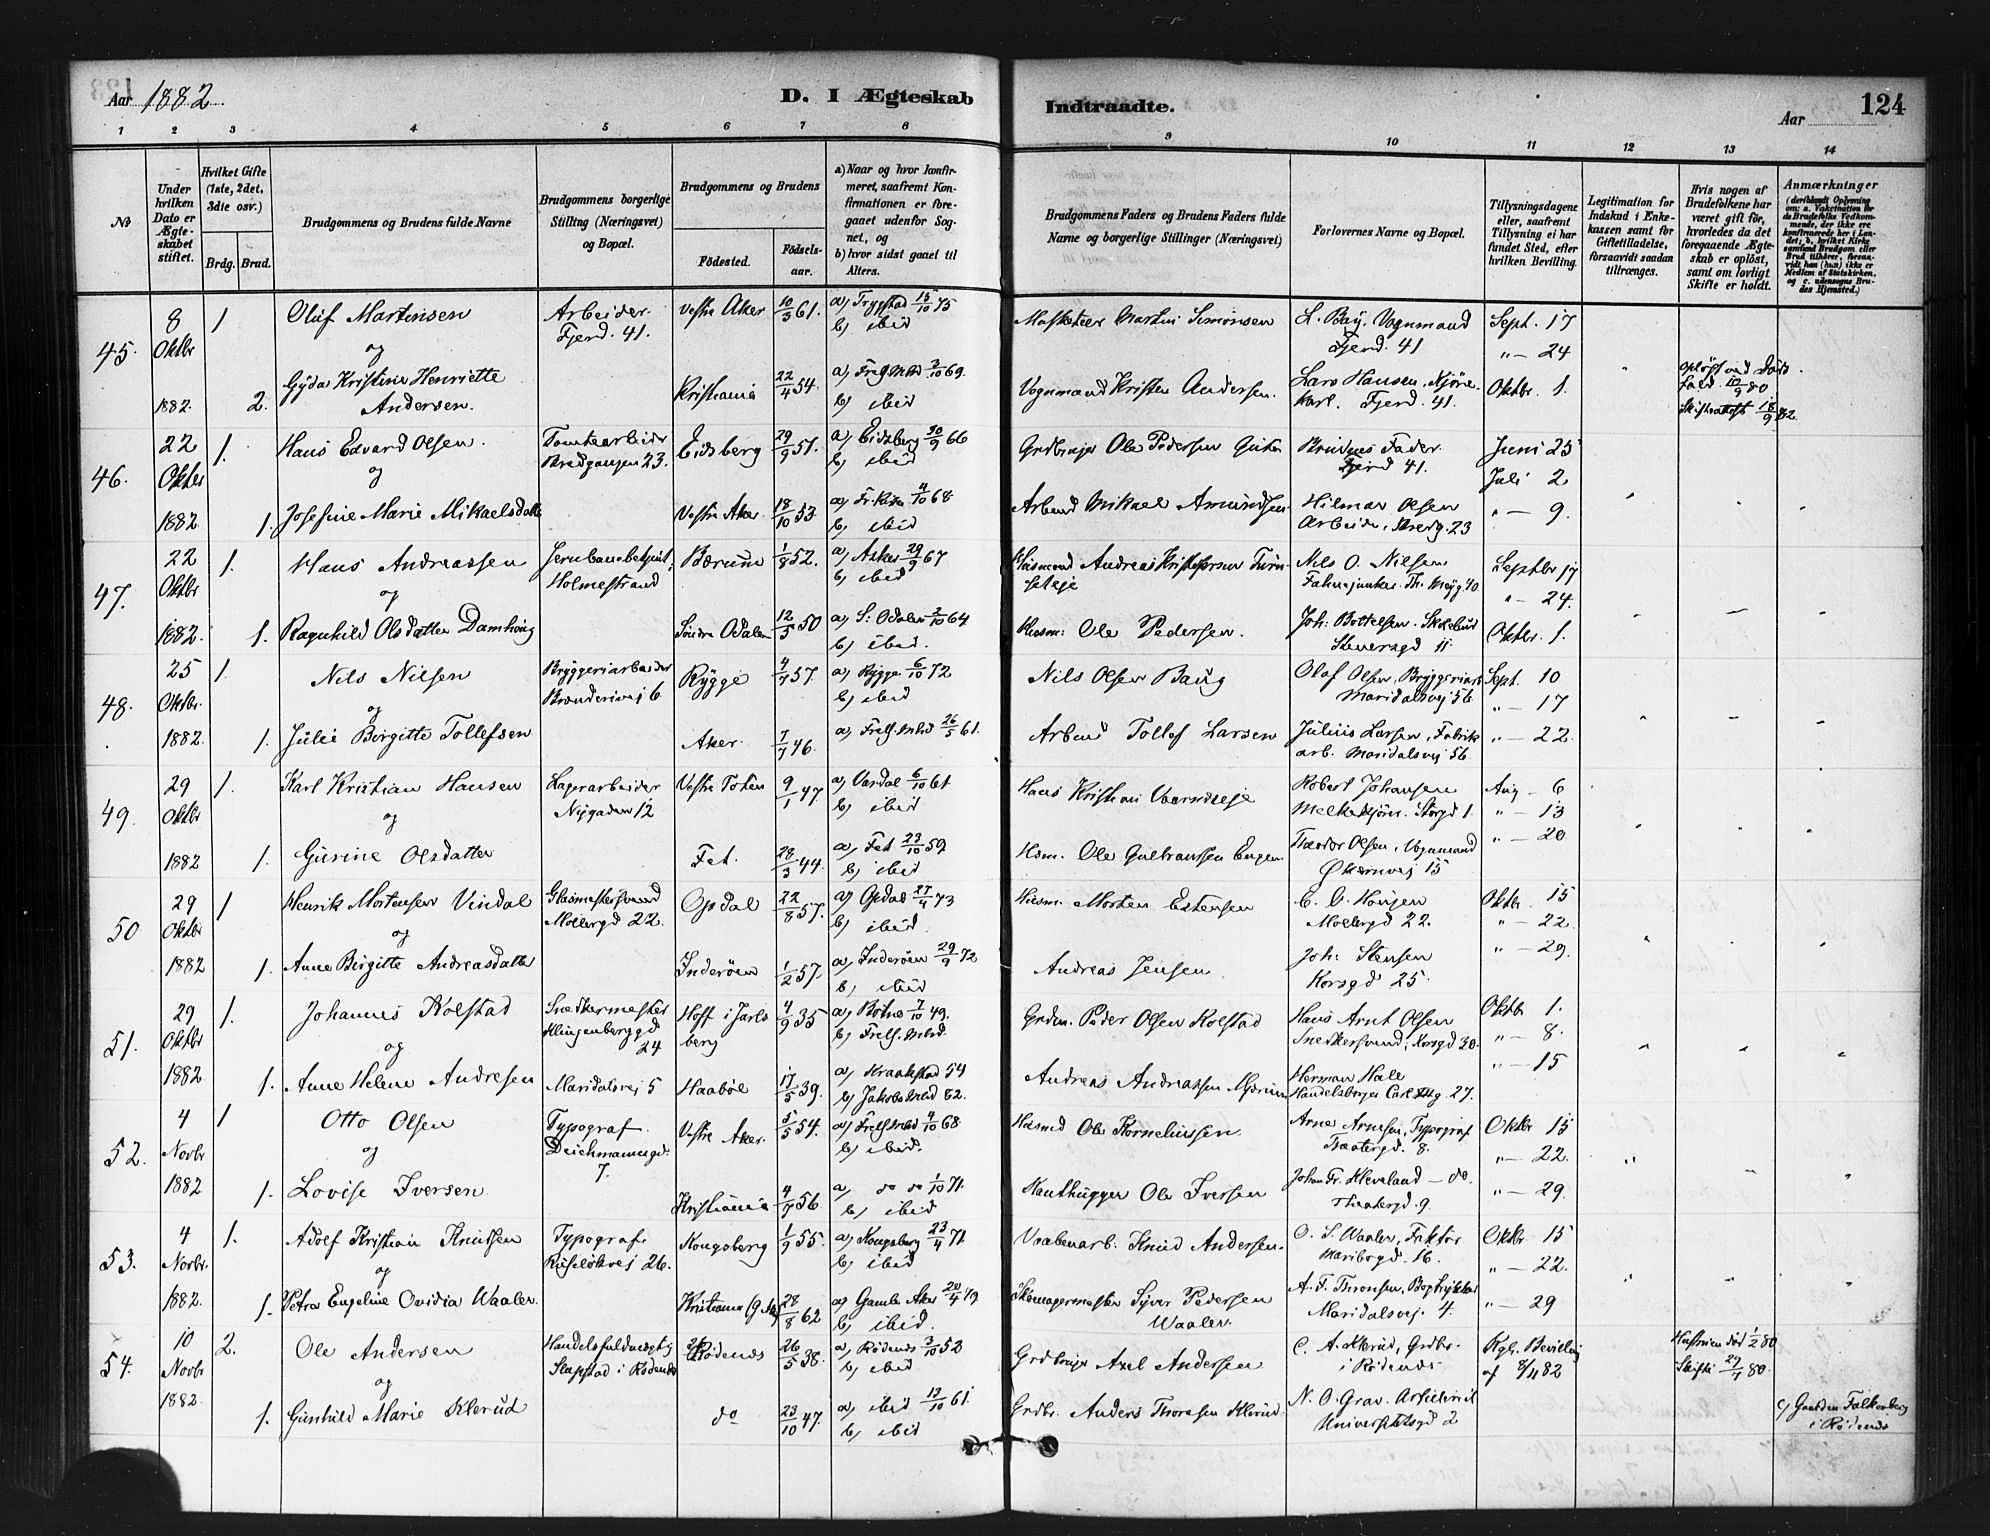 Aar 1882.
D. I Ægteskab Indtraadte.
Aar
124
1 2 3 4 5 6 7 8 9 10 11 12 13 14
No
Under hvilken Dato er Ægteskabet stiftet.
Hvilket Gifte (1ste, 2det, 3die osv.)
Brdg. Brud.
Brudgommens og Brudens fulde Navne
Brudgommens borgerlige Stilling (Næringsvei) og Bopæl.
Brudgommens og Brudens
Fødested. Fødselsaar.
a) Naar og hvor konfirmeret, saafremt Konfirmationen er foregaaet udenfor Sognet, og
b) hvor sidst gaaet til Alters.
Brudgommens Faders og Brudens Faders fulde Navne og borgerlige Stillinger (Næringsvei)
Forlovernes Navne og Bopæl.
Tillysningsdagene eller, saafremt Tillysning ei har fundet Sted, efter hvilken Bevilling.
Legitimation for Indskud i Enkekassen samt for Giftetilladelse, forsaavidt saadan tiltrænges.
Hvis nogen af Brudefolkene har været gift før, hvorledes da det foregaaende Ægteskab er opløst, samt om lovligt Skifte er holdt.
Anmærkninger (deriblandt Oplysning om: a. Vaktination for de Brudefolks Vedkommende, der ikke ere konfirmerede her i Landet; b. hvilket Kirkesamfund Brudgom eller Brud tilhører, forsaavidt han (hun) ikke er Medlem af Statskirken, og c. udensogns Brudes Hjemsted.)
45. 8 Oktbr 1882. 1 Oluf Martinsen Arbeider Fjerd. 41. Vestre Aker 10/3 61. a) Trygstad 15/10 75 b) ibid Martin Simonsen L. Bay, Vognmand Fjerd. 41 Sept. 17 " — 24
og
2. Gyda Kristine Henriette Andersen. Kristiania 22/4 54. a) Frels. Mhd 3/10 69. b) ibid Vognmand Kristen Andersen. Lars Hansen, Kjørekarl. Fjerd. 41. Oktbr. 1. opløst ved Dødsfald 10/9 80 Skifteattest 18/9 82
46. 22 Oktbr 1882 1. Hans Edvard Olsen Tomtearbeider Bredgangen 23. Eidsberg 29/9 57. a) Eidsberg 30/9 66 b) ibid Grdbruger Ole Pedersen Brudens Fader Fjerd 41. Juni 25 Juli 2
og
1. Josefine Marie Mikaelsdatter Vestre Aker 18/10 53. a) 4/10 68 b) ibid Arbmd Mikael Amundsen Hilmar Olsen Arbeider, Bredg. 23 " — 9.
47. 22 Oktbr 1882. 1. Hans Andreassen Jernbanebetjent, Holmestrand Bærum 1/8 52. a) Asker 29/9 67 b) ibid Husmand Andreas Kristofersen Nils O. Nilsen Fanejunker. Th. Meyg. 40 Septbr 17 " — 24.
og
1. Ragnhild Olsdatter Damhoug Søndre Odalen 12/5 50 a) S. Odalen 2/10 64 b) ibid. Husm: Ole Pedersen. Joh: Bottelsen. Stenersgd 11. Oktbr. 1.
48. 25 Oktbr. 1882. 1. Nils Nilsen Bryggeriarbeider Brænderivej 6 Rygge 4/7 57. a) Rygge 6/10 72 b) ibid Nils Olsen Baug Olaf Olsen, Bryggeriarb Maridalsvej 56 Sept. 10 " — 17
og
1. Julie Birgitte Tollefsen Aker. 7/1 46. a) Frels. Mhd 26/5 61. Arbmd Tollef Larsen Julius Larsen, Fabrikarb. Maridalsvej 56. " — 22.
49. 29 Oktbr 1882 1. Karl Kristian Hansen Lagerarbeider Nygaden 12 Vestre Toten 9/1 47 a) Vardal 6/10 61 b) ibid Hans Kristian Robert Johansen Melkekjører. Storgd 1. Aug — 6 " — 13
og
1. Gurine Olsdatter Fet. 28/3 44. a) Fet 23/10 59 b) ibid Hsm. Ole Gulbranssen Theodor Olsen, Vognmand Økernvej 15 " — 20
50 29 Oktbr 1882 1 Henrik Mortensen Vindal Glasmestersvend Møllergd 22. Opdal 22/8 57. a) Opdal 27/4 73 b) ibid. Husm. Morten Estensen Møllergd 22. Oktbr. 15 " — 22.
og
1. Anne Birgitte Andreasdatter Inderøen 1/2 57. a) Inderøen 29/9 72 b) ibid Andreas Jensen Joh: Stensen Korsgd 25. " — 29.
51. 29 Oktbr 1882 1. Johannes Kolstad Snedkermester Klingenberggd 24 Hoff i Jarlsberg 4/9 35 a) Botne 7/10 49. b) Frels. Mhd. Grdm. Peder Olsen Kolstad Hans Arnt Olsen Snedkersvend, Korsgd 30. Oktbr 1. " — 8.
og
1. Anne Helene Andresen Maridalsvej 5 Haabøl 17/5 39. a) Kraakstad 54 b) Jakobs Mhd 82. Andreas Andreassen Herman Hale Handelsborger " — 15
52. 4 Novbr 1882 1 Otto Olsen Typograf Deichmannsgd. 7. Vestre Aker. 5/5 54. a) Frels Mhd 4/10 68. b) ibid. Husmd Ole Kornelinssen. Arne Arnesen, Typograf Theatergd. 8. Oktbr 15 " — 22.
og
1. Lovise Iversen Kristiania 4/7 56 a) do do 1/10 71. b) ibid Kanthugger Ole Iversen Johan Fr. Kleveland — do. Theatergd. 9 " — 29.
53. 4 Novbr. 1882. 1. Adolf Kristian Knudsen Typograf Ruseløkvej 26. Kongsberg 1/9 55. a) Kongsberg 23/4 71 b) ibid Vaabenarb. Knud Andersen. O. S. Waaler, Faktor Maribogd. 16. Oktbr. 15 " — 22.
og
1. Petra Engeline Ovidia Waaler. Kristiania (G. Aker) 28/8 62 a) Gamle Aker 20/4 79 b) ibid. Skomagermester Syver Pedersen Waaler. A. F. Thronsen, Bogtrykker Maridalsvej. 4. " — 29
54. 10 Novbr 1882 2. Ole Andersen Handelsfuldmægtig Slupstad i Rødenes Rødenes 26/5 38. a) Rødenes 3/10 52 b) ibid Grdbruger Axel Andersen C. A. Klerud, Grdbr. i Rødenes Kgl. Bevilling af 8/11 82 Hustruen død 1/2 80 Skifte 29/7 80.
og
1. Gunhild Marie Klerud do 23/10 47. a) ibid 13/10 61. b) ibid Grdbr. Anders Thoresen Klerud N. O. Grav. Arkitekt Universitetsgd 2 c) Gaarden Falkenberg i Rødenes